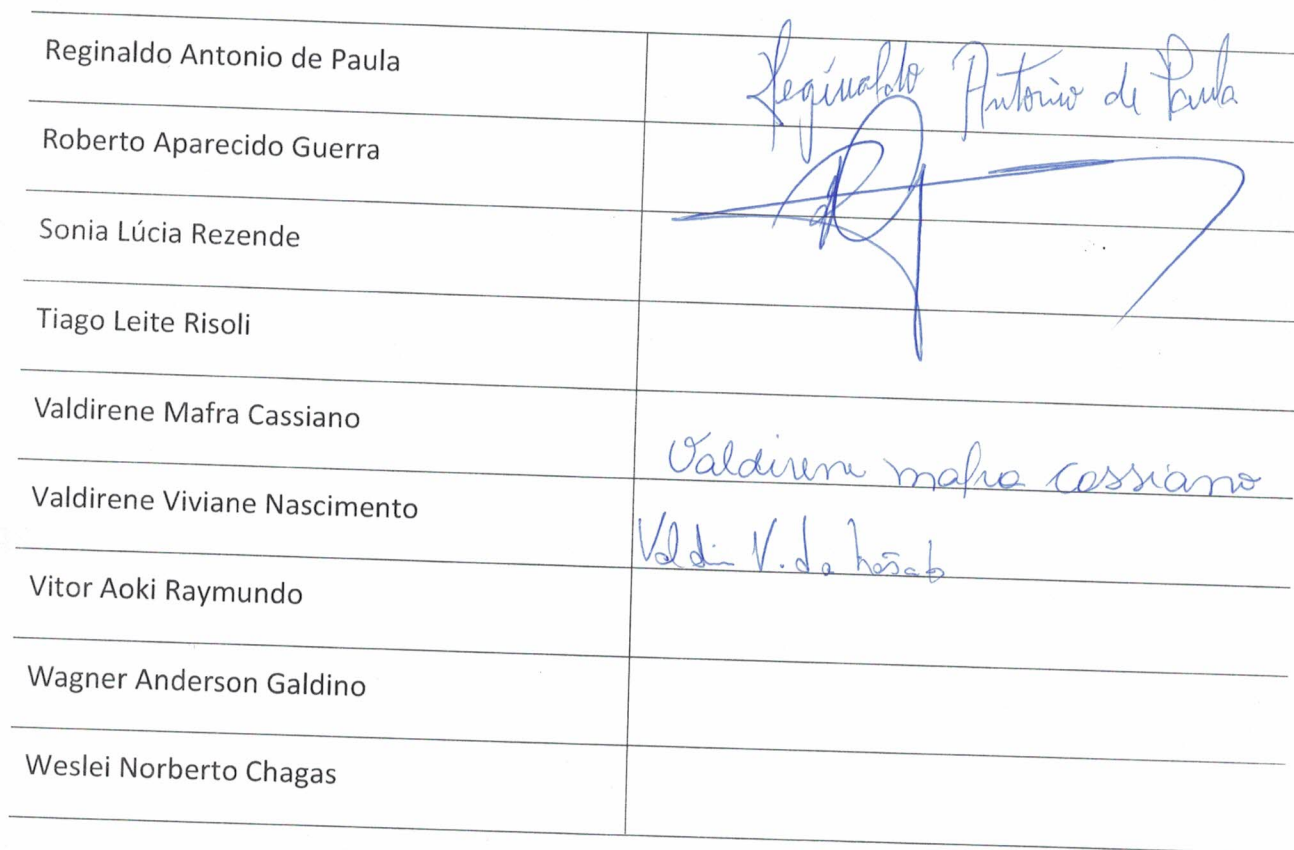 Reginaldo Antonio de Paula Reginaldo Antonio de Paula
Roberto Aparecido Guerra
Sonia Lúcia Rezende
Tiago Leite Risoli
Valdirene Mafra Cassiano Valdirene mafra cassiano
Valdirene Viviane Nascimento V.
Vitor Aoki Raymundo
Wagner Anderson Galdino
Weslei Norberto Chagas